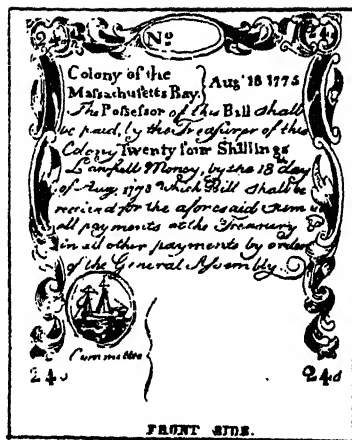 24s No 24s
Colony of the
Massachusetts Bay. } Augt 18 1775
The Possessor of this Bill shall
be paid, by the Treasurer of this
Colony Twenty four Shillings
Lawfull Money, by the 18th day
of Aug, 1778 Which Bill shall be
received for the aforesaid sum in
all payments at the Treasury
in all other payments by order
of the General Assembly.
Committee
24s 24s
FRONT SIDE.